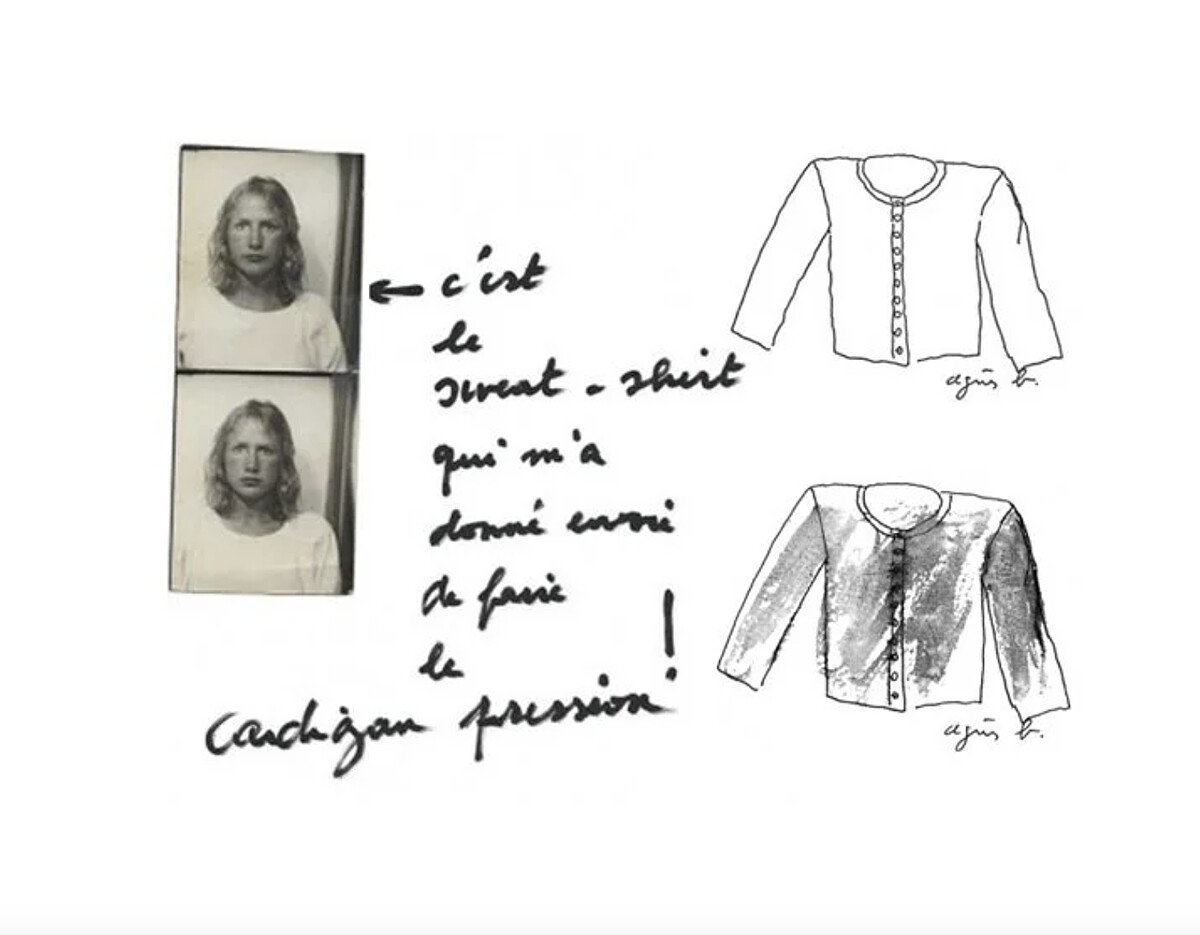 ← c'est
le
sweat-shirt
qui m'a
donné envie
de faire
le
cardigan pression !
agnès b.
agnès b.